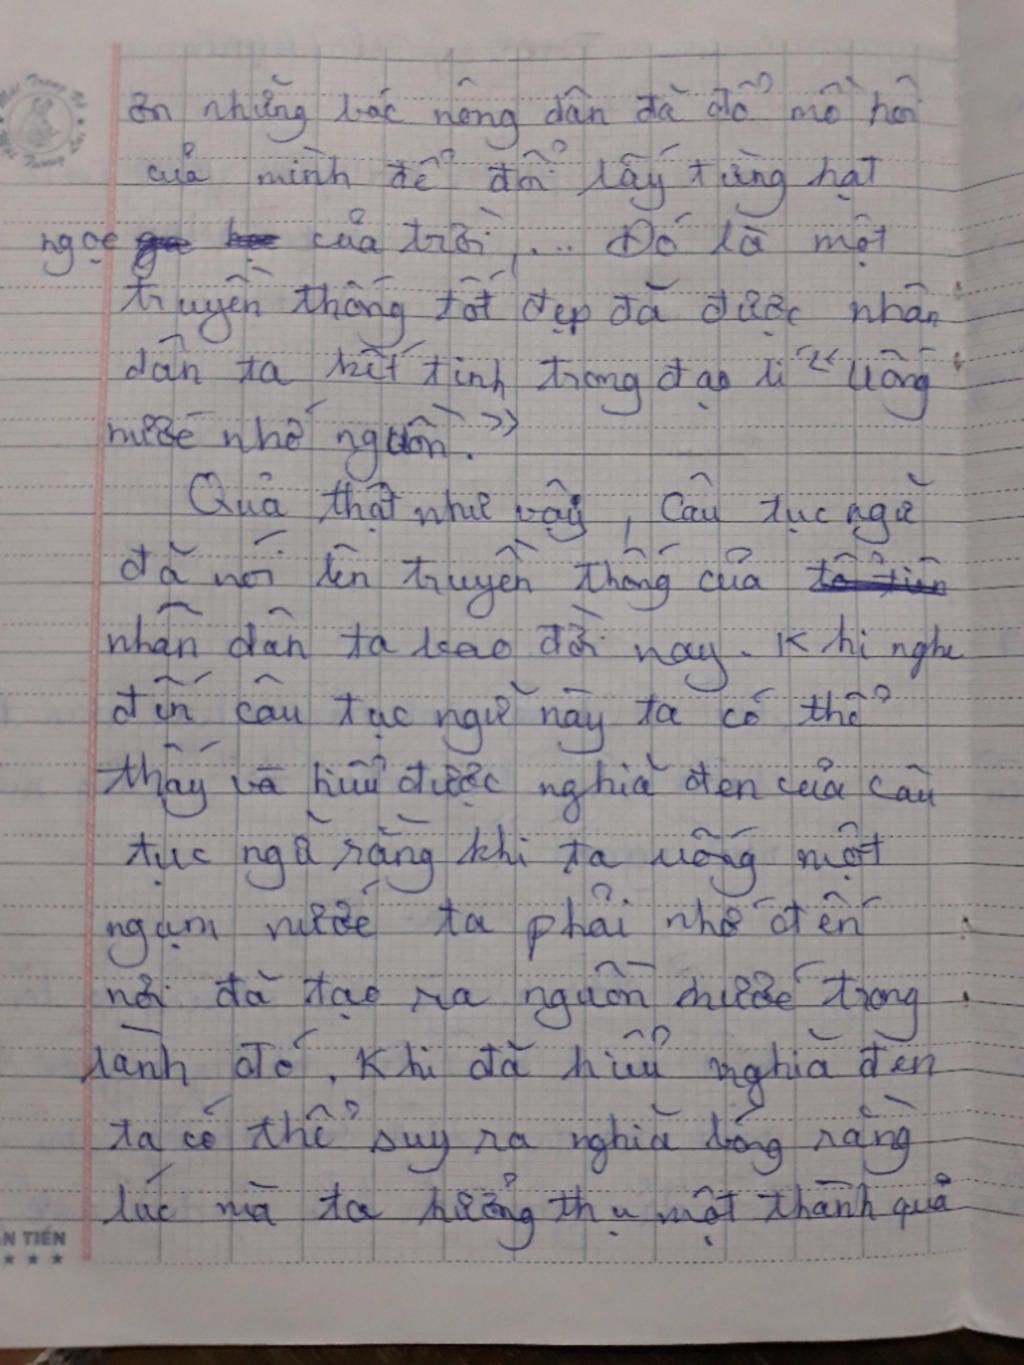 ơn những bác nông dân đã đổ mồ hôi
của mình để đổi lấy từng hạt
ngọc của trời,... Đó là một
truyền thống tốt đẹp đã được nhân
dân ta kết tinh trong đạo lí "Uống
nước nhớ nguồn."
Quả thật như vậy, Câu tục ngữ
đã nói lên truyền thống của tổ tiên
nhân dân ta bao đời nay. Khi nghe
đến câu tục ngữ này ta có thể
thấy và hiểu được nghĩa đen của câu
tục ngữ rằng khi ta uống một
ngụm nước ta phải nhớ đến
nơi đã tạo ra nguồn nước trong
lành đó. Khi đã hiểu nghĩa đen
ta có thể suy ra nghĩa bóng rằng
lúc mà ta hưởng thụ một thành quả
ẤN TIẾN